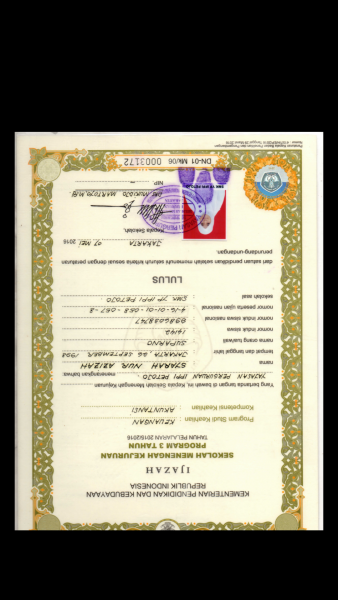 KEMENTERIAN PENDIDIKAN DAN KEBUDAYAAN
REPUBLIK INDONESIA
IJAZAH
SEKOLAH MENENGAH KEJURUAN
PROGRAM 3 TAHUN
TAHUN PELAJARAN 2015/2016
Program Studi Keahlian : KEUANGAN
Kompetensi Keahlian : AKUNTANSI
Yang bertanda tangan di bawah ini, Kepala Sekolah Menengah Kejuruan
YAYASAN PERGURUAN IPPI PETOJO menerangkan bahwa:
nama : SYARAH NUR AZIZAH
tempat dan tanggal lahir : JAKARTA, 26 SEPTEMBER
nama orang tua/wali : SUPARNO
nomor induk siswa
nomor induk siswa nasional
nomor peserta ujian nasional
sekolah asal : SMK YP IPPI PETOJO
LULUS
dari satuan pendidikan setelah memenuhi seluruh kriteria sesuai dengan peraturan
perundang-undangan.
JAKARTA, 07 MEI 2016
Kepala Sekolah,
NIP
DN-01 Mk/06 0003172